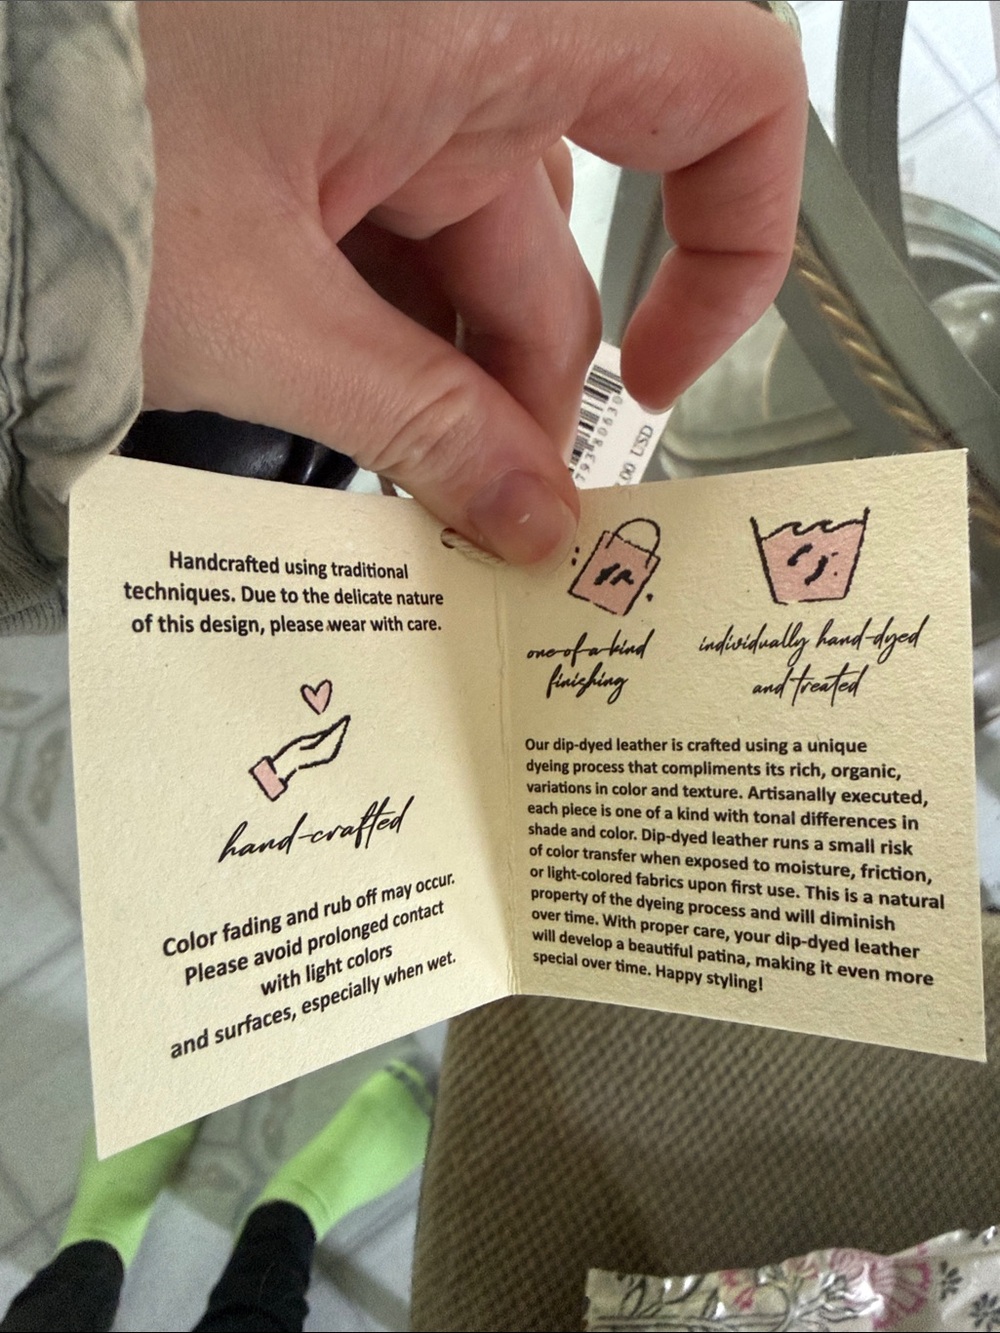 Handcrafted using traditional
techniques. Due to the delicate nature
of this design, please wear with care.
hand-crafted
Color fading and rub off may occur.
Please avoid prolonged contact
with light colors
and surfaces, especially when wet.
one-of-a-kind
finishing
individually hand-dyed
and treated
Our dip-dyed leather is crafted using a unique
dyeing process that compliments its rich, organic,
variations in color and texture. Artisanally executed,
each piece is one of a kind with tonal differences in
shade and color. Dip-dyed leather runs a small risk
of color transfer when exposed to moisture, friction,
or light-colored fabrics upon first use. This is a natural
property of the dyeing process and will diminish
over time. With proper care, your dip-dyed leather
will develop a beautiful patina, making it even more
special over time. Happy styling!
.00 USD